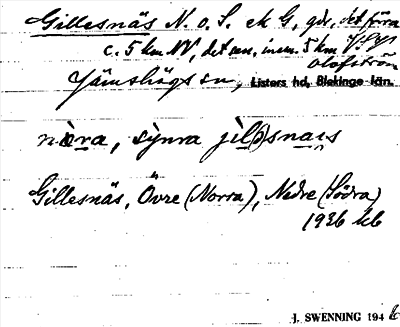 Gillesnäs N. o. S. ek G, gdr, det förra
c. 5 km NV, det sen. inem. 5 km VSV
Olofström
Jämshögs sn, Listers hd, Blekinge län.
nöra, synra jil(ə)snais
Gillesnäs, Övre (Norra), Nedre (Södra)
1936 kb
J. SWENNING 1946